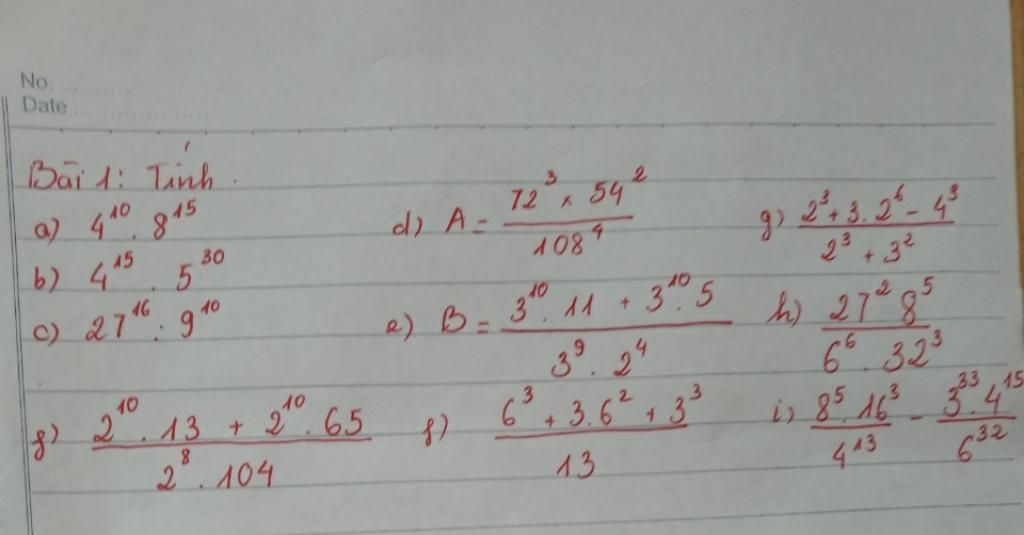 No.
Date
Bài 1: Tính.
a) 4^10 . 8^15
d) A = (72^3 × 54^2) / 108^4
g) (2^3 + 3.2^6 - 4^3) / (2^3 + 3^2)
b) 4^15 . 5^30
c) 27^16 : 9^10
e) B = (3^10 . 11 + 3^10 . 5) / (3^9 . 2^4)
h) (27^2 8^5) / (6^6 . 32^3)
f) (2^10 . 13 + 2^10 . 65) / (2^8 . 104)
f) (6^3 + 3.6^2 + 3^3) / 13
i) (8^5 . 16^3) / 4^13 - (3^33 . 4^15) / 6^32